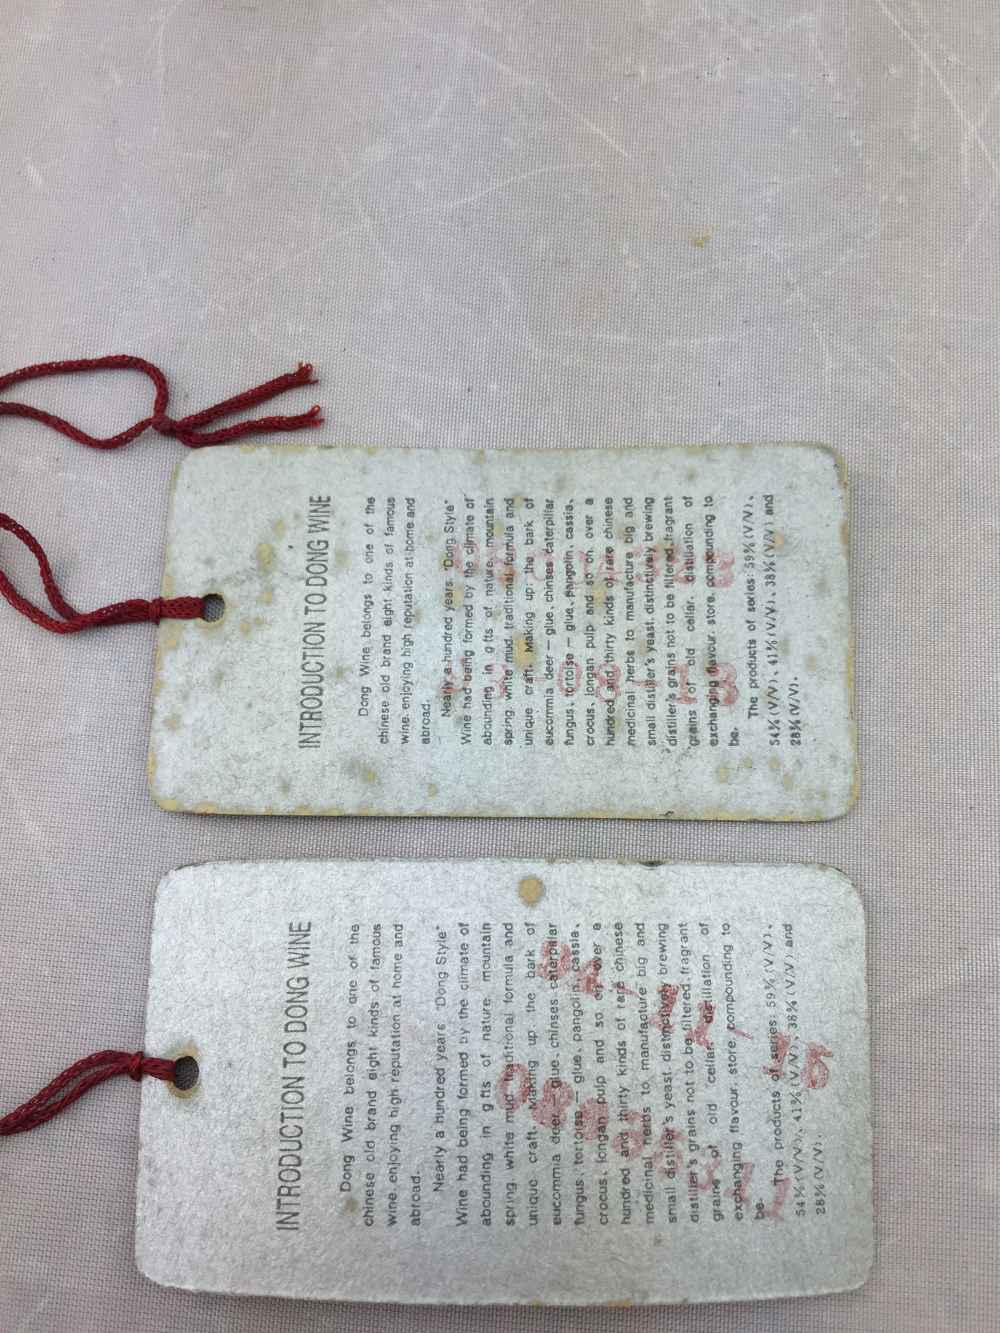 INTRODUCTION TO DONG WINE
Dong Wine belongs to one of the
chinese old brand eight kinds of famous
wine, enjoying high reputation at home and
abroad.
Nearly a hundred years "Dong Style"
Wine had being formed by the climate of
abounding in gifts of nature, mountain
spring, white mud, traditional formula and
unique craft. Making up: the bark of
eucommia deer — glue, chinses caterpillar
fungus, tortoise — glue, pangolin, cassia,
crocus, longan pulp and so on, over a
hundred and thirty kinds of rare chinese
medicinal herbs to manufacture big and
small distiller's yeast, distinctively brewing
distiller's grains not to be filtered, fragrant
grains of old cellar, distillation of
exchanging flavour, store, compounding to
be.
The products of series: 59% (V/V)、
54% (V/V)、41% (V/V)、38% (V/V) and
28% (V/V).
INTRODUCTION TO DONG WINE
Dong Wine belongs to one of the
chinese old brand eight kinds of famous
wine, enjoying high reputation at home and
abroad.
Nearly a hundred years "Dong Style"
Wine had being formed by the climate of
abounding in gifts of nature, mountain
spring, white mud, traditional formula and
unique craft. Making up the bark of
eucommia deer — glue, chinses caterpillar
fungus, tortoise — glue, pangolin, cassia,
crocus, longan pulp and so on, over a
hundred and thirty kinds of rare chinese
medicinal herbs to manufacture big and
small distiller's yeast, distinctively brewing
distiller's grains not to be filtered, fragrant
grains of old cellar, distillation of
exchanging flavour, store, compounding to
be.
The products of series: 59% (V/V)、
54% (V/V)、41% (V/V)、38% (V/V) and
28% (V/V).